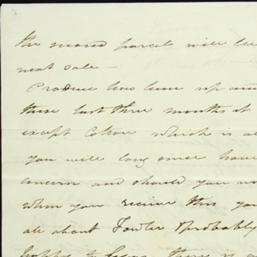 the                parcels will be
next sale —
Produce has been up and
these last three months it
except Cotton which is a
you will long since have
concern and should you no
when you receive this you
all about Fowler & probably
happy to               there is